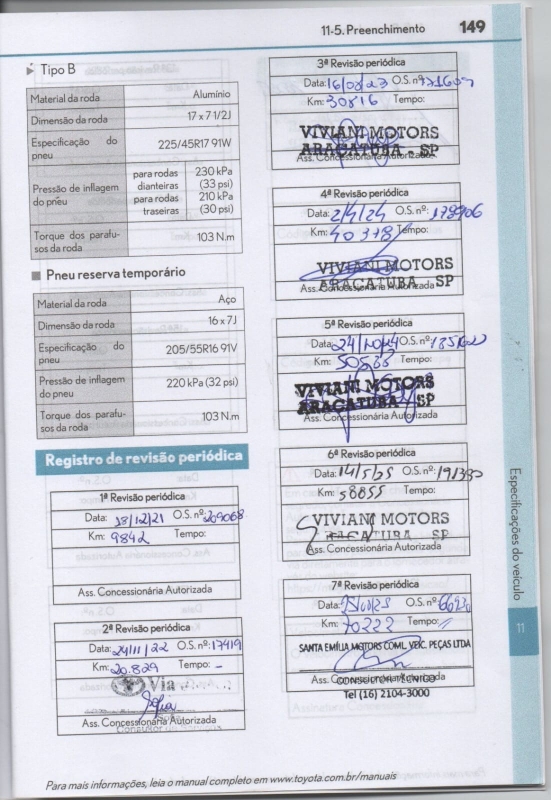 11-5. Preenchimento 149
Tipo B
Material da roda Alumínio
Dimensão da roda 17 x 7 1/2J
Especificação do pneu 225/45R17 91W
Pressão de inflagem do pneu
para rodas dianteiras 230 kPa (33 psi)
para rodas traseiras 210 kPa (30 psi)
Torque dos parafusos da roda 103 N.m
Pneu reserva temporário
Material da roda Aço
Dimensão da roda 16 x 7J
Especificação do pneu 205/55R16 91V
Pressão de inflagem do pneu 220 kPa (32 psi)
Torque dos parafusos da roda 103 N.m
Registro de revisão periódica
1ª Revisão periódica
Data: /12/21 O.S. nº: 209068
Km: 9842 Tempo:
Ass. Concessionária Autorizada
2ª Revisão periódica
Data: 24/11/22 O.S. nº: 17419
Km: 20.829 Tempo: -
Via
Ass. Concessionária Autorizada
3ª Revisão periódica
Data: 16/08/23 O.S. nº:
Km: 30816 Tempo:
VIVIANI MOTORS
ARAÇATUBA - SP
Ass. Concessionária Autorizada
4ª Revisão periódica
Data: 2/4/24 O.S. nº: 178906
Km: 40378 Tempo:
VIVIANI MOTORS
ARAÇATUBA SP
Ass. Concessionária Autorizada
5ª Revisão periódica
Data: 24/10/24 O.S. nº:
Km: Tempo:
VIVIANI MOTORS
ARAÇATUBA SP
Ass. Concessionária Autorizada
6ª Revisão periódica
Data: 14/5/25 O.S. nº: 191380
Km: 58855 Tempo:
VIVIANI MOTORS
ARAÇATUBA SP
Ass. Concessionária Autorizada
7ª Revisão periódica
Data: O.S. nº:
Km: 70222 Tempo:
SANTA EMÍLIA MOTORS COML. VEÍC. PEÇAS LTDA
Ass. Concessionária Autorizada
CONSULTOR TÉCNICO
Tel (16) 2104-3000
Especificações do veículo
11
Para mais informações, leia o manual completo em www.toyota.com.br/manuais